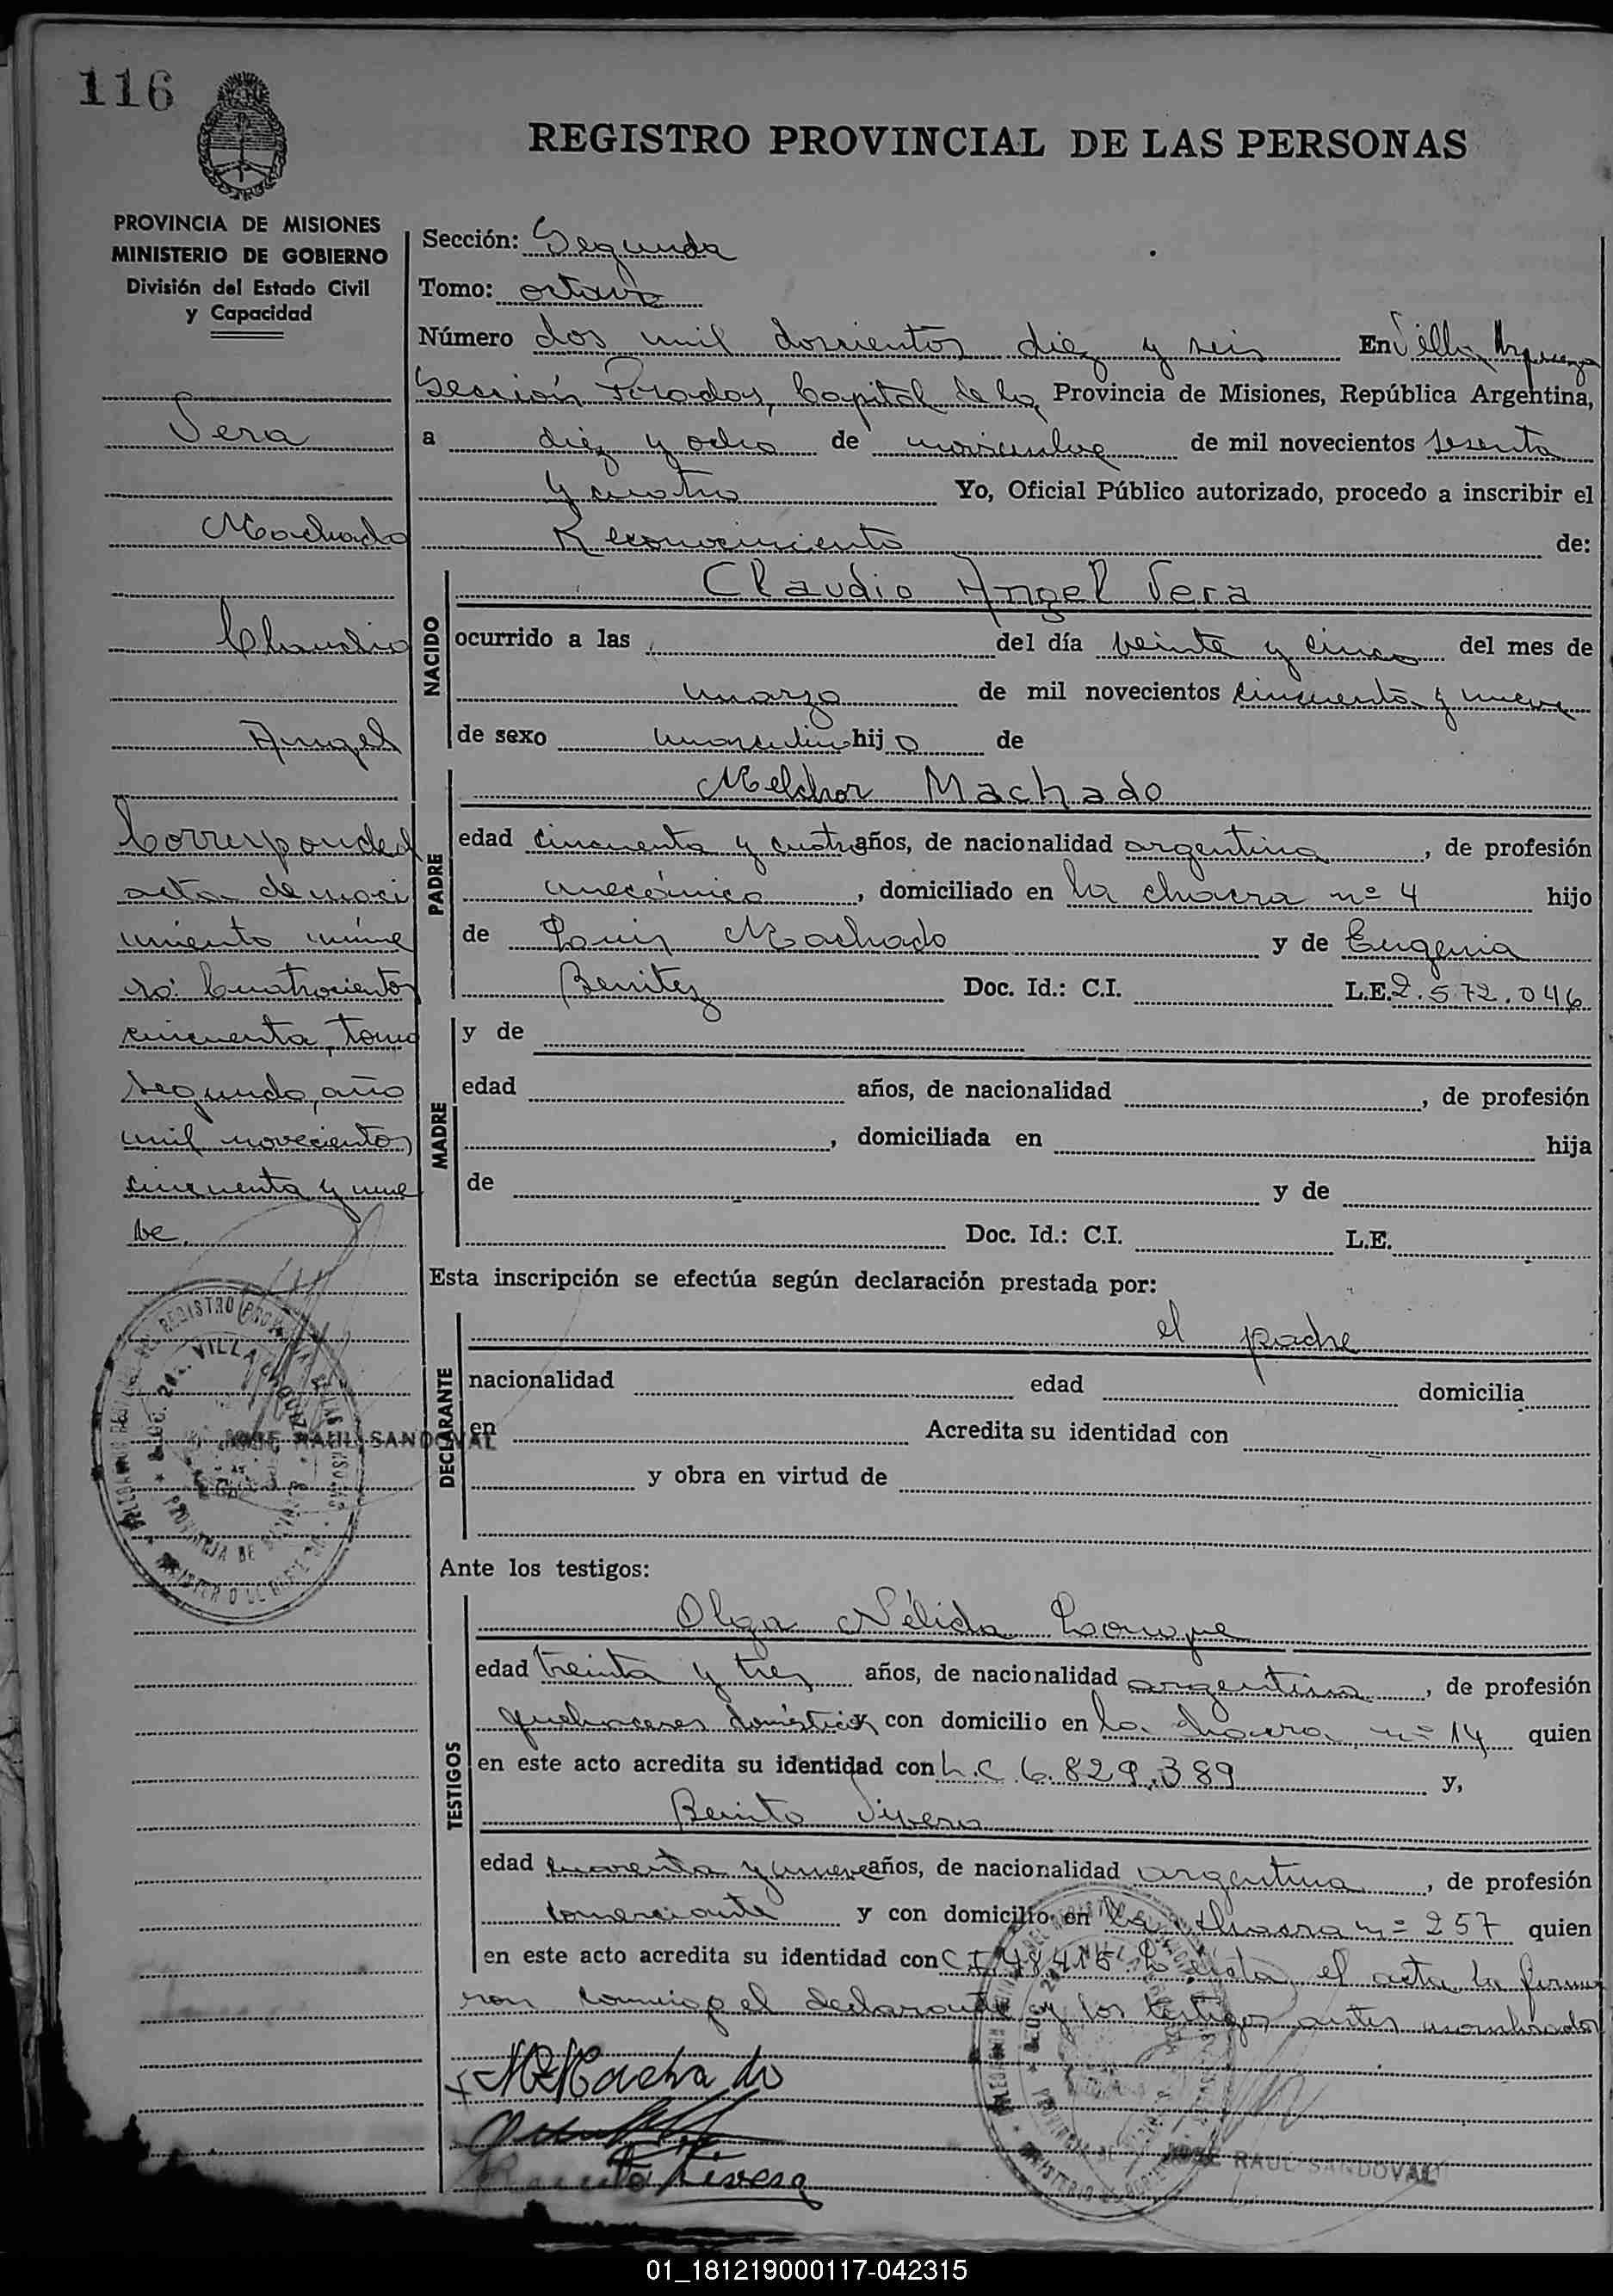 116
REGISTRO PROVINCIAL DE LAS PERSONAS
PROVINCIA DE MISIONES
MINISTERIO DE GOBIERNO
División del Estado Civil
y Capacidad
Vera
Machado
Claudio
Angel
Corresponde al
acta de naci
miento núme
ro: Cuatrocientos
cincuenta, tomo
segundo, año
mil novecientos
cincuenta y nue
ve.
JOSE RAUL SANDOVAL
Sección: Segunda
Tomo: octavo
Número dos mil doscientos diez y seis En Villa Urquiza
Sección Posadas, Capital de la Provincia de Misiones, República Argentina,
a diez y ocho de noviembre de mil novecientos sesenta
y cuatro Yo, Oficial Público autorizado, procedo a inscribir el
Reconocimiento de:
NACIDO
Claudio Angel Vera
ocurrido a las del día veinte y cinco del mes de
marzo de mil novecientos cincuenta y nueve
de sexo masculino hijo de
PADRE
Melchor Machado
edad cincuenta y cuatro años, de nacionalidad argentina, de profesión
mecánico, domiciliado en la chacra nº 4 hijo
de Luis Machado y de Eugenia
Benitez Doc. Id.: C.I. L.E. 2.572.046
MADRE
y de
edad años, de nacionalidad , de profesión
, domiciliada en hija
de y de
Doc. Id.: C.I. L.E.
Esta inscripción se efectúa según declaración prestada por:
DECLARANTE
el padre
nacionalidad edad domicilia
en Acredita su identidad con
y obra en virtud de
Ante los testigos:
TESTIGOS
Olga Nélida Louque
edad treinta y tres años, de nacionalidad argentina, de profesión
quehaceres domésticos con domicilio en la chacra nº 14 quien
en este acto acredita su identidad con L.C 6.829.389 y,
Benito Rivero
edad cuarenta y nueve años, de nacionalidad argentina, de profesión
comerciante y con domicilio en la chacra nº 257 quien
en este acto acredita su identidad con C I 48415 Leída el acta la firma
ron conmigo el declarante y los testigos antes nombrados
M Machado
Rivero
JOSE RAUL SANDOVAL
01_181219000117-042315